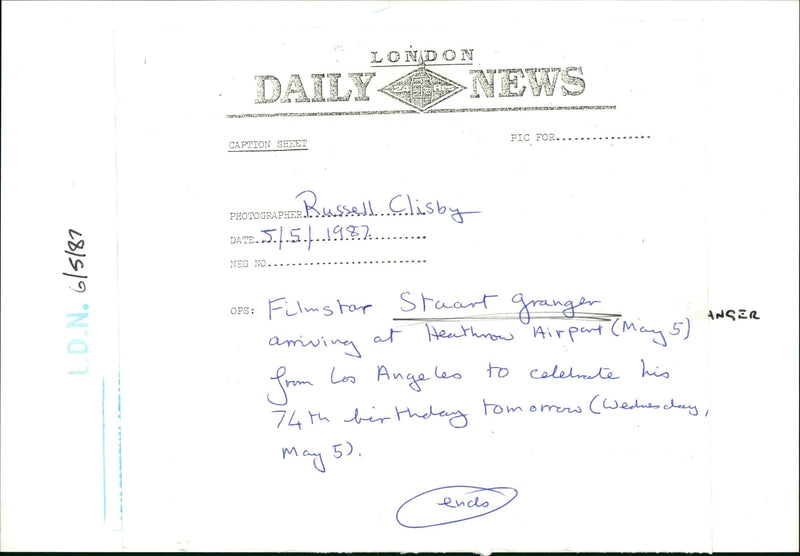 LONDON
DAILY NEWS
CAPTION SHEET
PIC FOR................
PHOTOGRAPHER Russell Clisby
DATE 5/5/1987
NEG NO............................
OPS: Filmstar Stuart Granger
arriving at Heathrow Airport (May 5)
from Los Angeles to celebrate his
74th birthday tomorrow (Wednesday,
May 5).
ends
ANGER
L.D.N. 6/5/87